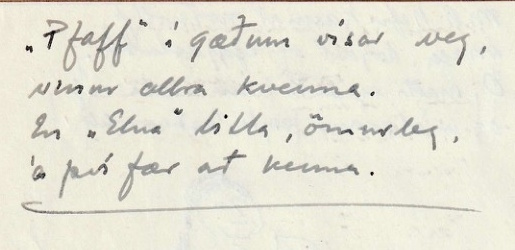 „Pfaff“ í gæðum vísar veg,
vinur allra kvenna.
En „Elna“ litla, ömurleg,
á því fær að kenna.